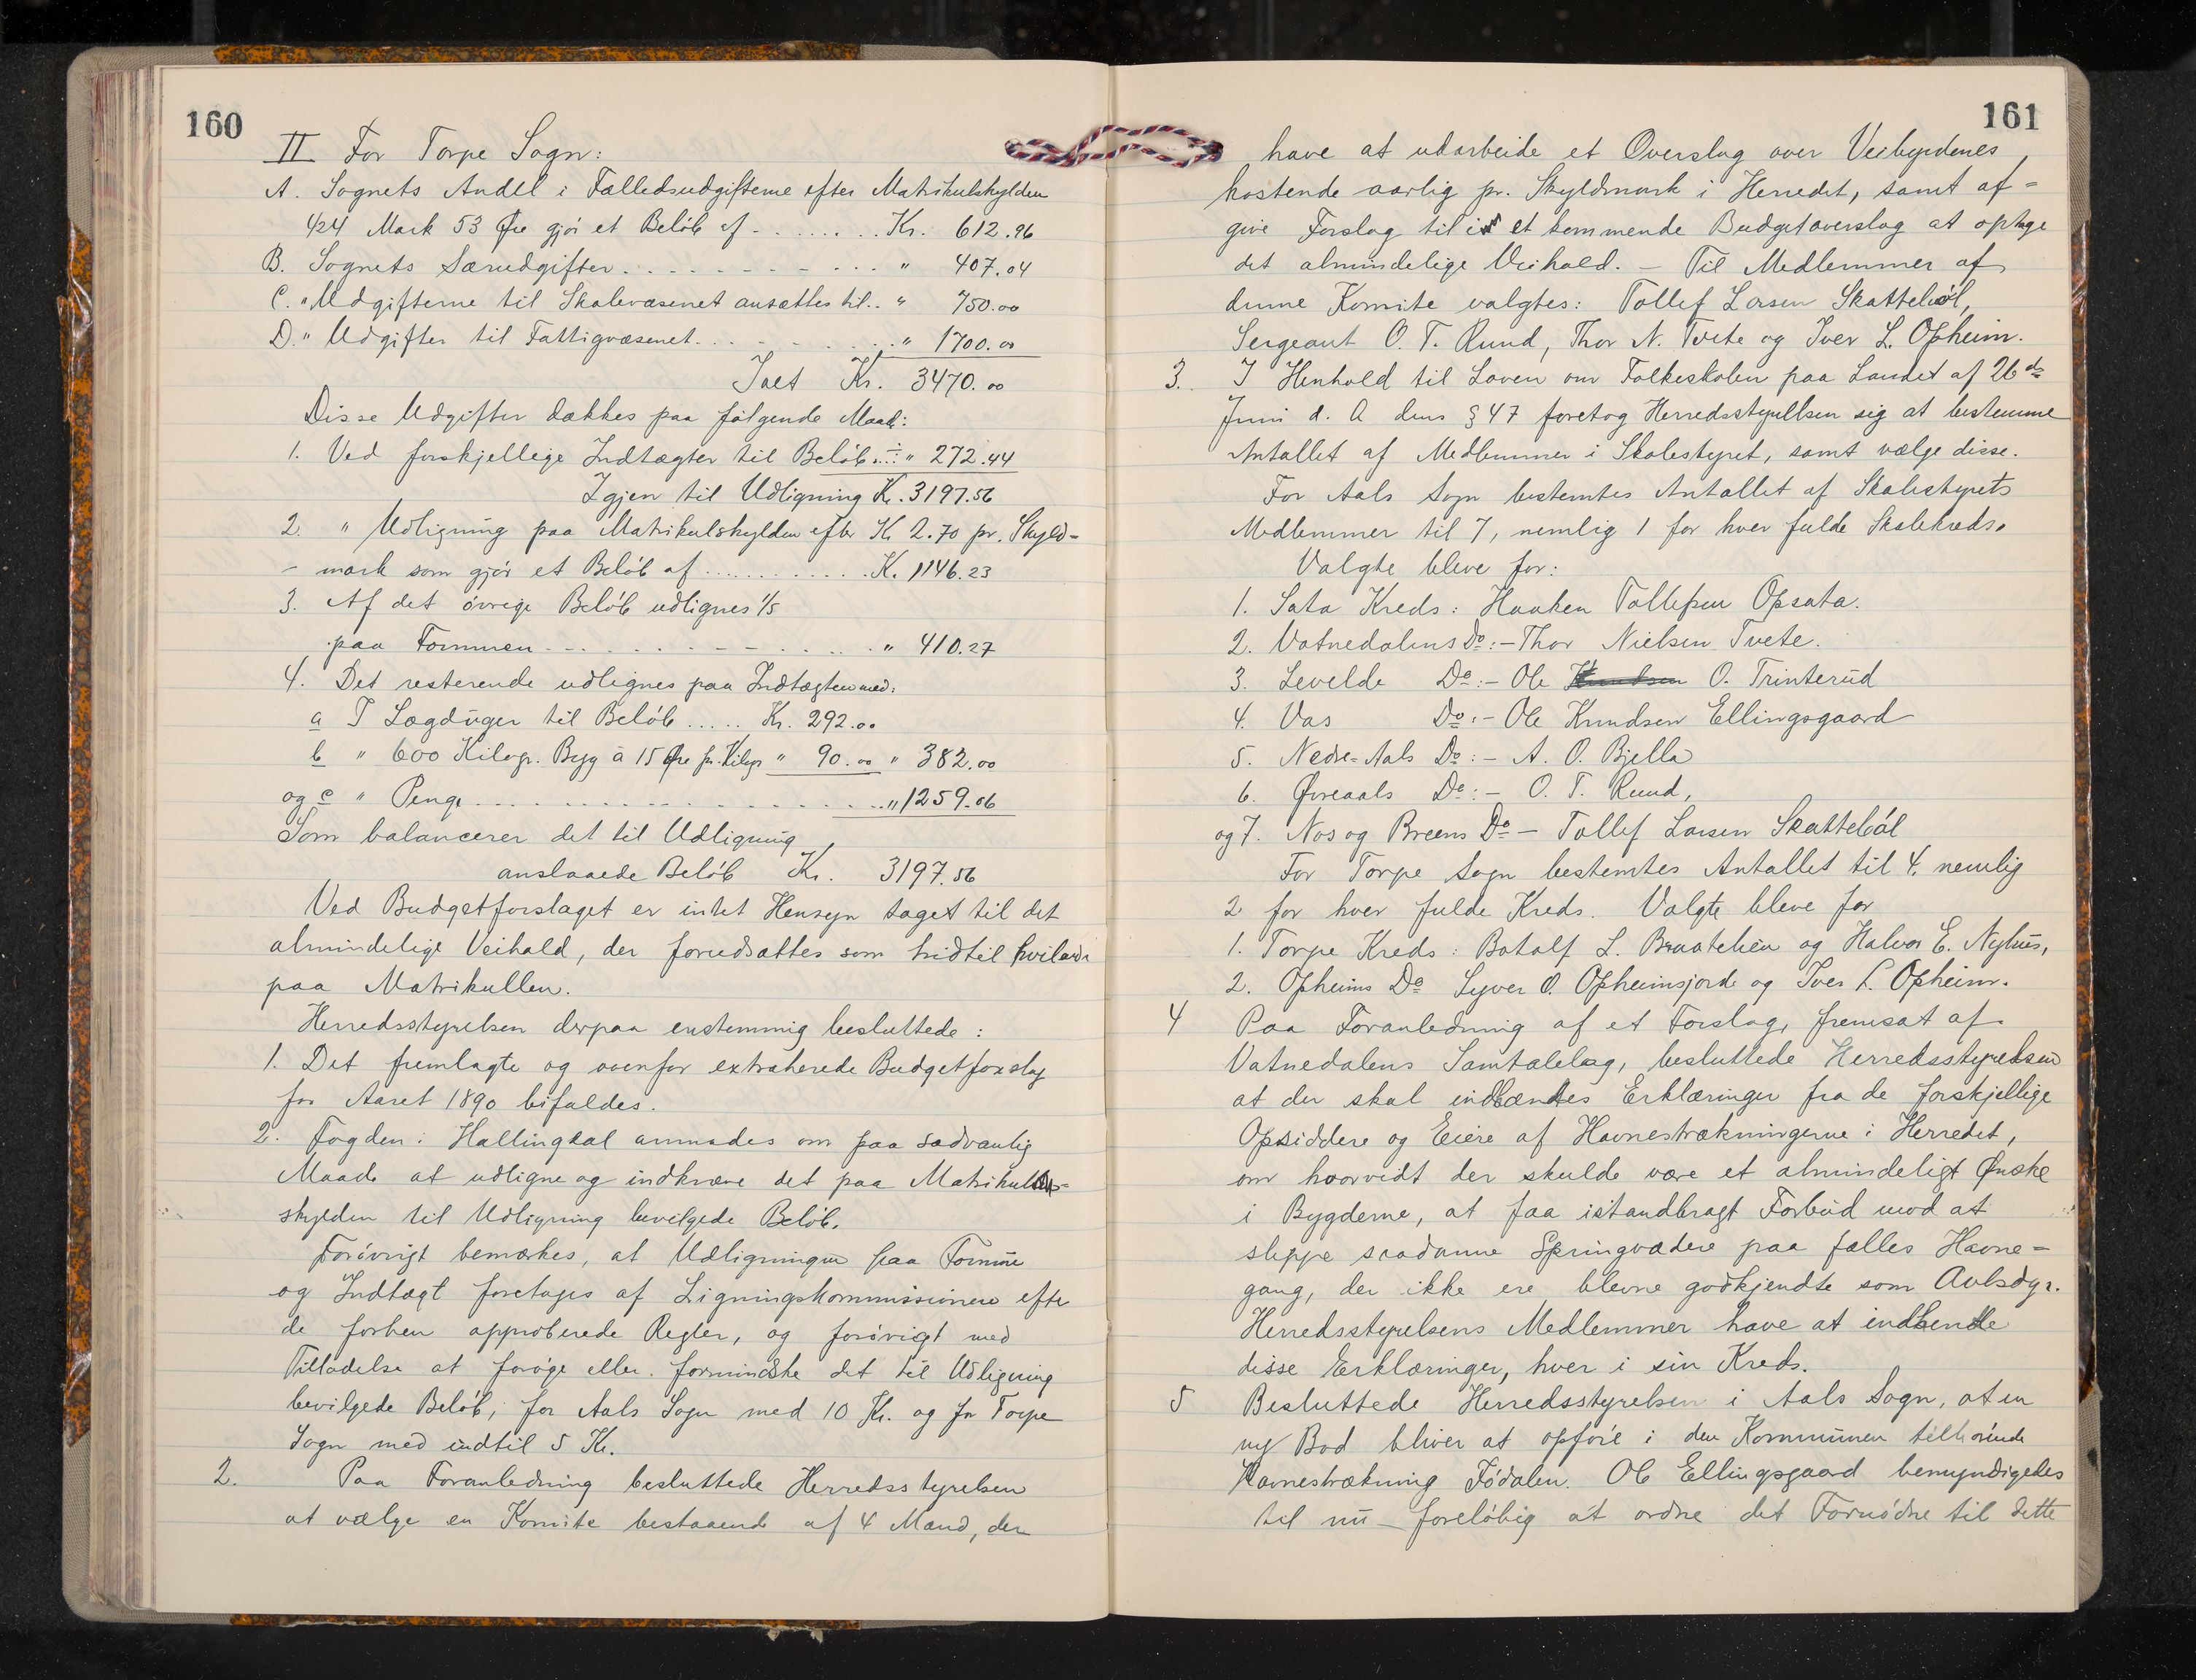 160
II For Torpe Sogn:
A. Sognets Andel i Fælledsudgifterne efter Matrikulskylden
424 Mark 53 Øre gjør et Beløb af ........ Kr. 612.96
B. Sognets Særudgifter ........ " 407.04
C. " Udgifterne til Skolevæsenet ansættes til .. " 750.00
D. " Udgifter til Fattigvæsenet ........ " 1700.00
Ialt Kr. 3470.00
Disse Udgifter dækkes paa følgende Maade:
1. Ved forskjellige Indtægter til Beløb ... " 272.44
Igjen til Udligning Kr. 3197.56
2. " Udligning paa Matrikulskylden efter Kr 2.70 pr. Skyld-
- mark som gjør et Beløb af ........ K. 1146.23
3. Af det øvrige Beløb udlignes 1/5
paa Formuen ........ " 410.27
4. Det resterende udlignes paa Indtægten med:
a I Lægdøger til Beløb ..... Kr. 292.00
b " 600 Kilogr. Byg à 15 Øre pr. Kilogr " 90.00 " 382.00
og c " Penge ........ " 1259.06
Som balancerer det til Udligning
anslaaede Beløb Kr. 3197.56
Ved Budgetforslaget er intet Hensyn taget til det
almindelige Veihold, der forudsættes som hidtil hvilende
paa Matrikullen.
Herredsstyrelsen derpaa enstemmig besluttede:
1. Det fremlagte og ovenfor extraherede Budgetforslag
for Aaret 1890 bifaldes.
2. Fogden i Hallingdal anmodes om paa sædvanlig
Maade at udligne og indkræve det paa Matrikul-
skylden til Udligning bevilgede Beløb.
Forøvrigt bemærkes, at Udligningen paa Formue
og Indtægt foretages af Ligningskommissionen efter
de forhen approberede Regler, og forøvrigt med
Tilladelse at forøge eller formindske det til Udligning
bevilgede Beløb, for Aals Sogn med 10 Kr. og for Torpe
Sogn med indtil 5 Kr.
2. Paa Foranledning besluttede Herredsstyrelsen
at vælge en Komite bestaaende af 4 Mænd, der
161
have at udarbeide et Overslag over Veibyrdenes
kostende aarlig pr. Skyldmark i Herredet, samt af-
give Forslag til i et kommende Budgetoverslag at optage
det almindelige Veihold. - Til Medlemmer af
denne Komite valgtes: Tollef Larsen Skattebøl,
Sergeant O. T. Ruud, Thor N. Tvete og Iver L. Opheim.
3. I Henhold til Loven om Folkeskolen paa Landet af 26de
Juni d. A dens § 47 foretog Herredsstyrelsen sig at bestemme
Antallet af Medlemmer i Skolestyret, samt vælge disse.
For Aals Sogn bestemtes Antallet af Skolestyrets
Medlemmer til 7, nemlig 1 for hver fulde Skolekreds.
Valgte bleve for:
1. Sata Kreds: Haaken Tollefsen Opsata.
2. Vatnedalens Do: - Thor Nielsen Tvete.
3. Levelde Do: - Ole Knudsen O. Trinterud
4. Vas Do: - Ole Knudsen Ellingsgaard
5. Nedre=Aals Do: - A. O. Bjella
6. Øvreaals Do: - O. T. Ruud,
og 7. Nos og Breens Do - Tollef Larsen Skattebøl
For Torpe Sogn bestemtes Antallet til 4. nemlig
2 for hver fulde Kreds. Valgte bleve for
1. Torpe Kreds: Botolf L. Braatelien og Halvor E. Nyhus,
2. Opheims Do Syver O. Opheimsjorde og Iver L. Opheim.
4 Paa Foranledning af et Forslag, fremsat af
Vatnedalens Samtalelag, besluttede Herredsstyrelsen
at der skal indhændtes Erklæringer fra de forskjellige
Opsiddere og Eiere af Havnestrækningerne i Herredet,
om hvorvidt der skulde være et almindeligt Ønske
i Bygderne, at faa istandbragt Forbud mod at
sleppe saadanne Springvædere paa fælles Havne=
gang, der ikke ere blevne godkjendte som Avlsdyr.
Herredsstyrelsens Medlemmer have at indhendte
disse Erklæringer, hver i sin Kreds.
5 Besluttede Herredsstyrelsen i Aals Sogn, at en
ny Bod bliver at opføre i den Kommunen tilhørende
Havnestrækning Fødalen. Ole Ellingsgaard bemyndigedes
til nu - foreløbig at ordne det Fornødne til dette